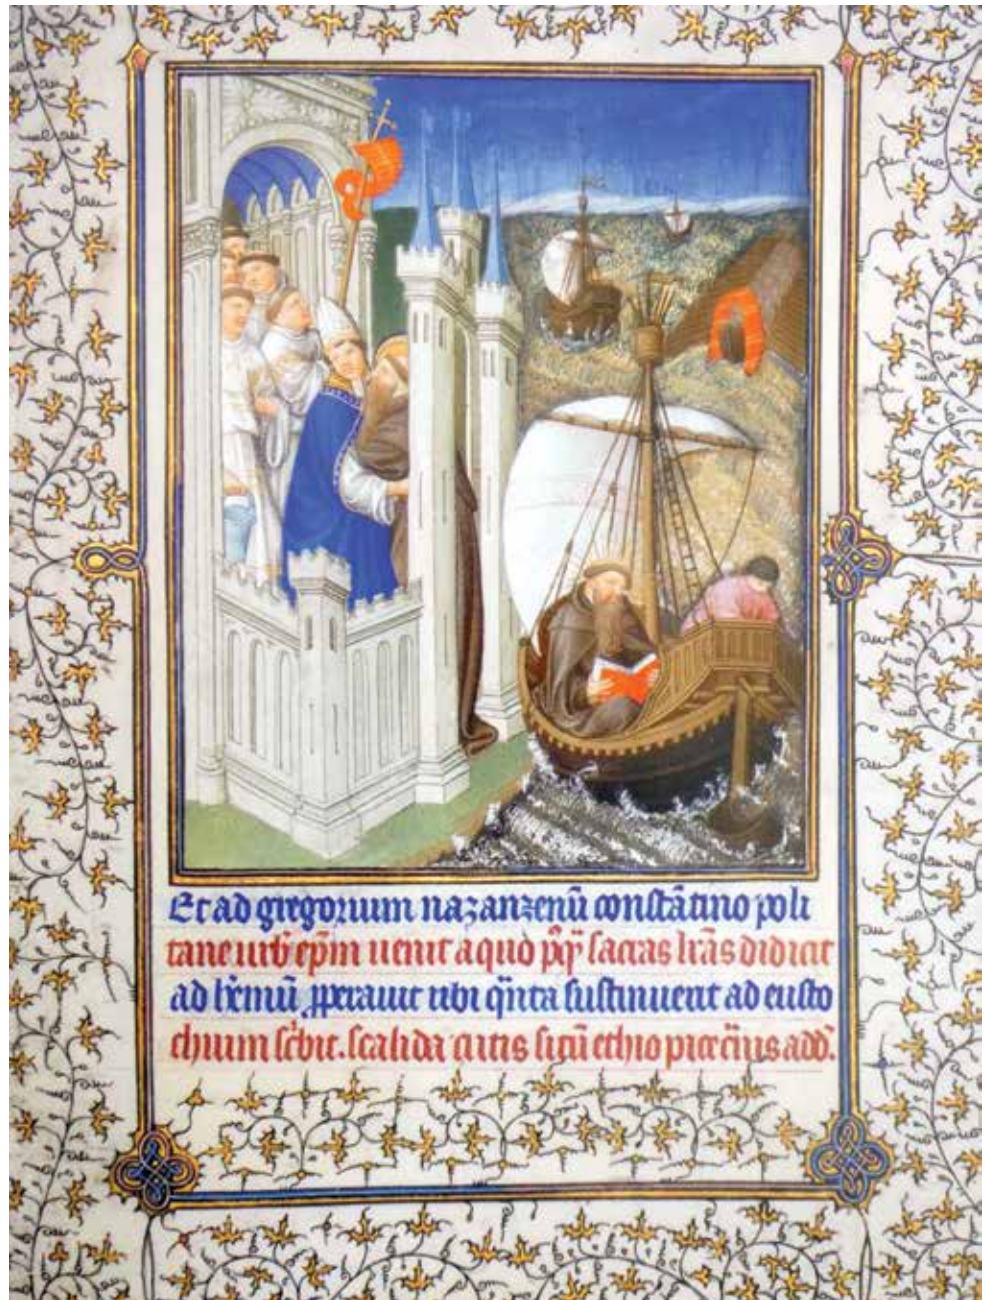 Et ad gregorium nazanzenū constātino poli
tane urb̄ ep̄m uenit a quo p̄p̄ sacras lr̄as didicit
ad h̄emū p̱perauit ubi q̄nta sustinuerit ad eusto
chium sc̄bit. scalida cutis situ ethiopice c̄nis add̄.